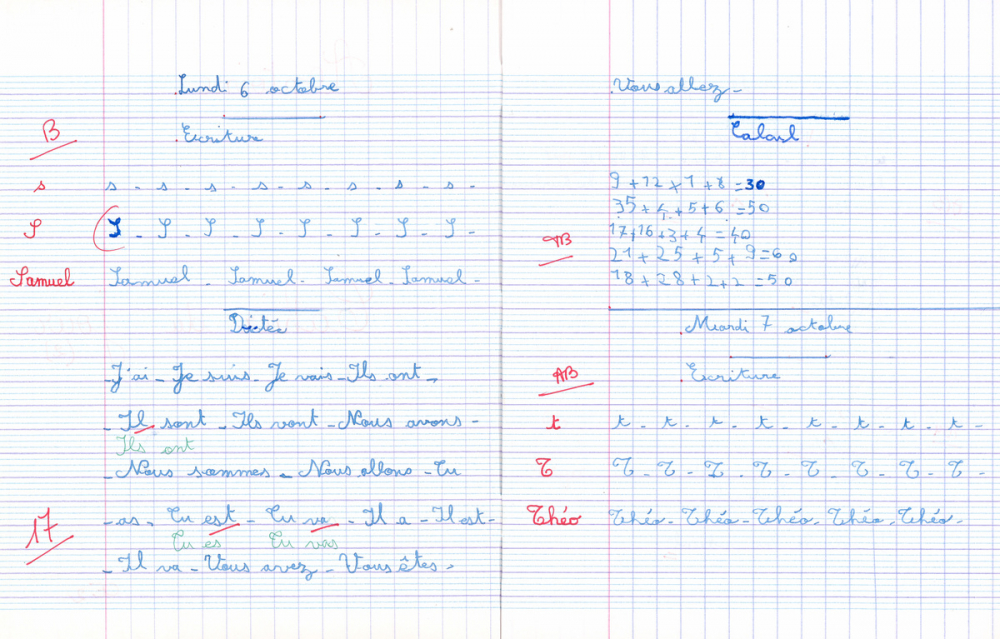 Lundi 6 octobre
Ecriture
B
s s - s - s - s - s - s - s - s -
S S - S - S - S - S - S - S - S -
Samuel Samuel - Samuel - Samuel - Samuel -
Dictée
- J'ai - Je suis - Je vais - Ils ont -
- Il sont - Ils vont - Nous avons -
Ils ont
- Nous sommes - Nous allons - Tu
17 - as - Tu est - Tu va - Il a - Il est -
Tu es Tu vas
- Il va - Vous avez - Vous êtes -
Vous allez -
9 + 12 + 1 + 8 = 30
35 + 4 + 5 + 6 = 50
TB 17 + 16 + 3 + 4 = 40
21 + 25 + 5 + 9 = 60
18 + 28 + 2 + 2 = 50
Mardi 7 octobre
AB Ecriture
t t - t - t - t - t - t - t - t -
T T - T - T - T - T - T - T - T -
Théo Théo - Théo - Théo - Théo - Théo -